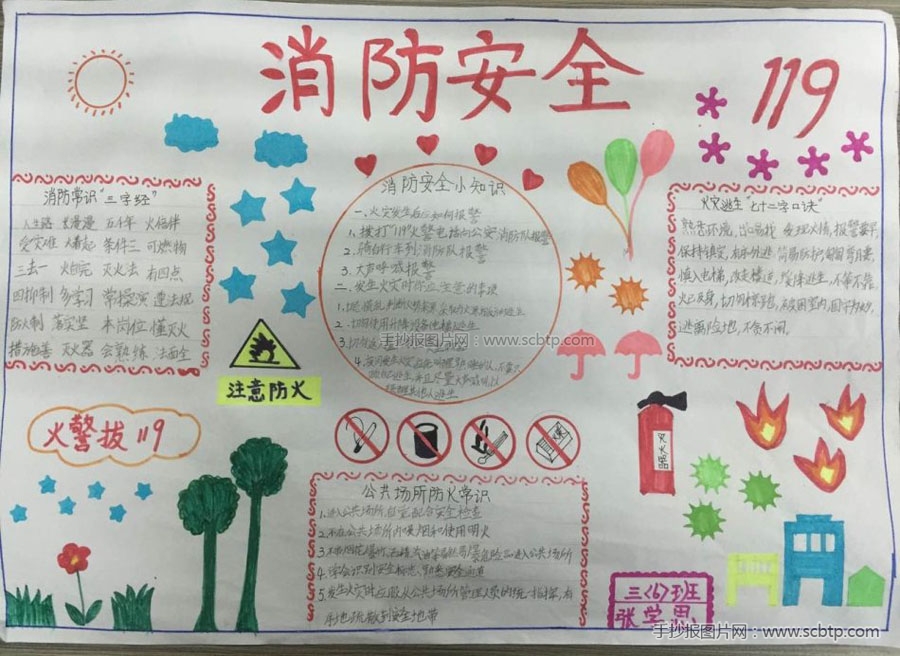 消防安全
119
消防常识"三字经"
人生路 长漫漫 五千年 火相伴
受灾难 火着起 条件三 可燃物
三去一 火自完 灭火法 有四点
四抑制 多学习 常操演 违法规
灭火器 会熟练 法面全
消防安全小知识
一、火灾发生后如何报警
1、拨打"119"火警电话向公安消防队报警
2、骑自行车到消防队报警
3、大声呼喊报警
二、发生火灾时你应注意的事项
火灾逃生"七十二字口诀"
熟悉环境,出口易找 发现火情,报警要早
保持镇定,有序外逃 简易防护,匍匐弯腰
慎入电梯,改走楼道 缓降逃生,不等不靠
火已及身,切勿惊跑 被困室内,固守为妙
逃离险地,不贪不闹。
注意防火
火警拨119
灭火器
公共场所防火常识
1、进入公共场所,自觉配合安全检查
2、不在公共场所内吸烟和使用明火
4、学会识别安全标志,熟悉安全通道
5、发生火灾时应服从公共场所管理人员的统一指挥,有
序地疏散到安全地带
三(6)班
张学思
手抄报图片网:www.scbtp.com
手抄报图片网:www.scbtp.com